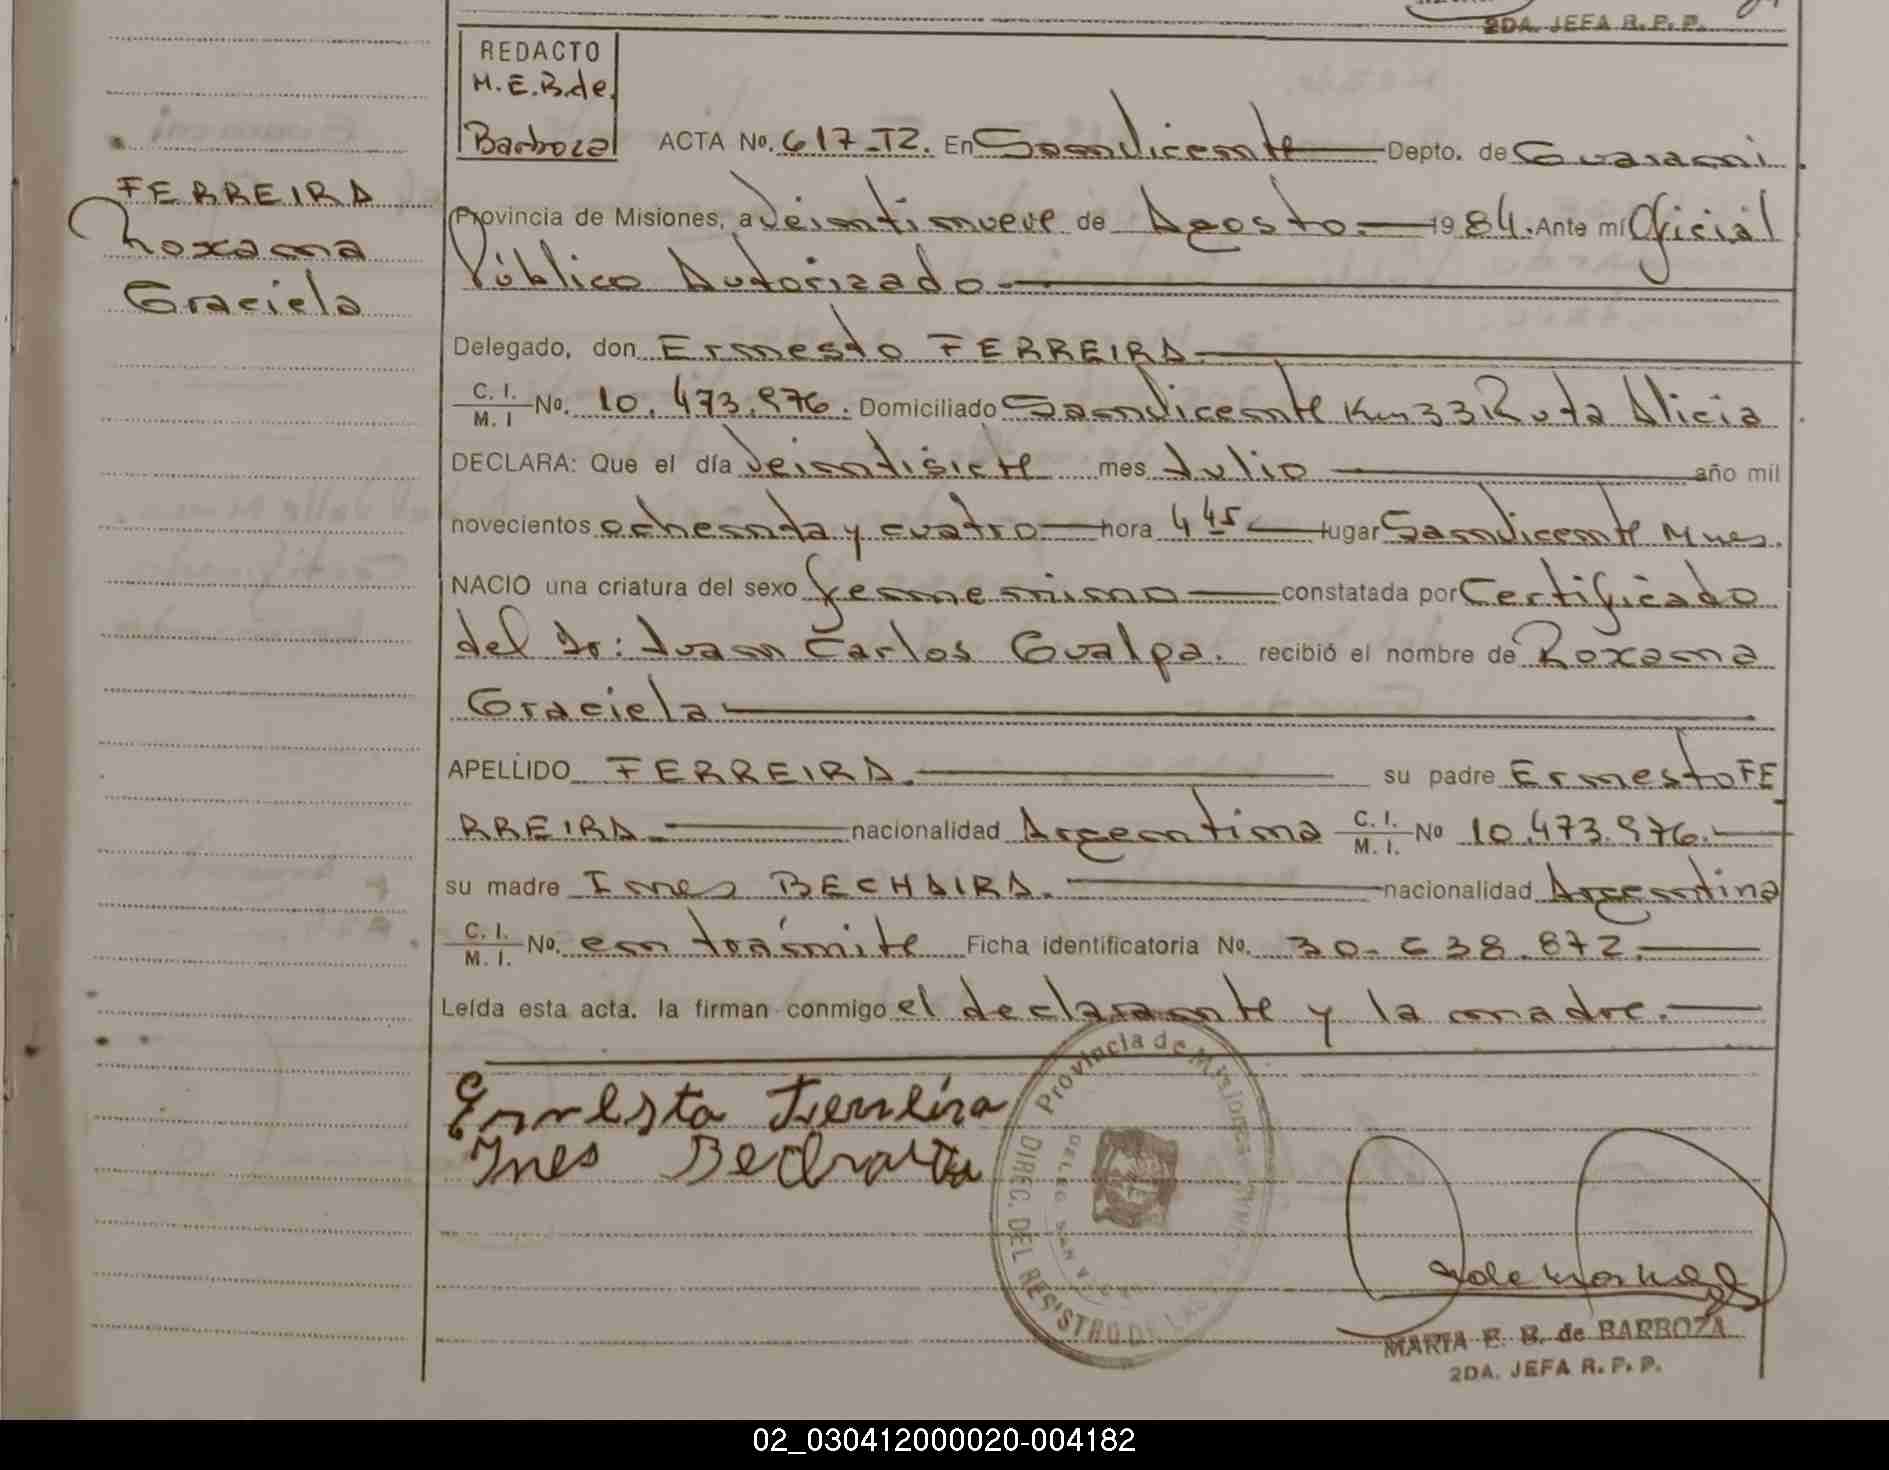 2DA. JEFA R. P. P.
REDACTO
M. E. B. de
Barboza
ACTA No. 617-T2. En San Vicente Depto. de Guarani.
FERREIRA
Roxana
Graciela
Provincia de Misiones, a Veintinueve de Agosto. 1984. Ante mí Oficial
Público Autorizado.
Delegado, don Ernesto FERREIRA
C. I. / M. I No. 10.473.976. Domiciliado San Vicente Km 33 Ruta Alicia
DECLARA: Que el día Veintisiete mes Julio año mil
novecientos ochenta y cuatro hora 4 45 lugar San Vicente Mnes.
NACIO una criatura del sexo femenino constatada por Certificado
del Dr: Juan Carlos Gualpa. recibió el nombre de Roxana
Graciela
APELLIDO FERREIRA. su padre Ernesto FE
RREIRA. nacionalidad Argentina C. I. / M. I. No 10.473.976.
su madre Ines BECHAIRA. nacionalidad Argentina
C. I. / M. I. No. en trámite Ficha identificatoria No. 30-638.872.
Leída esta acta. la firman conmigo el declarante y la madre.
Ernesto Ferreira
Ines
Provincia de Misiones
DIREC. DEL REGISTRO DE LAS
DELEG. SAN VICENTE
MARIA E. B. de BARBOZA
2DA. JEFA R. P. P.
02_030412000020-004182